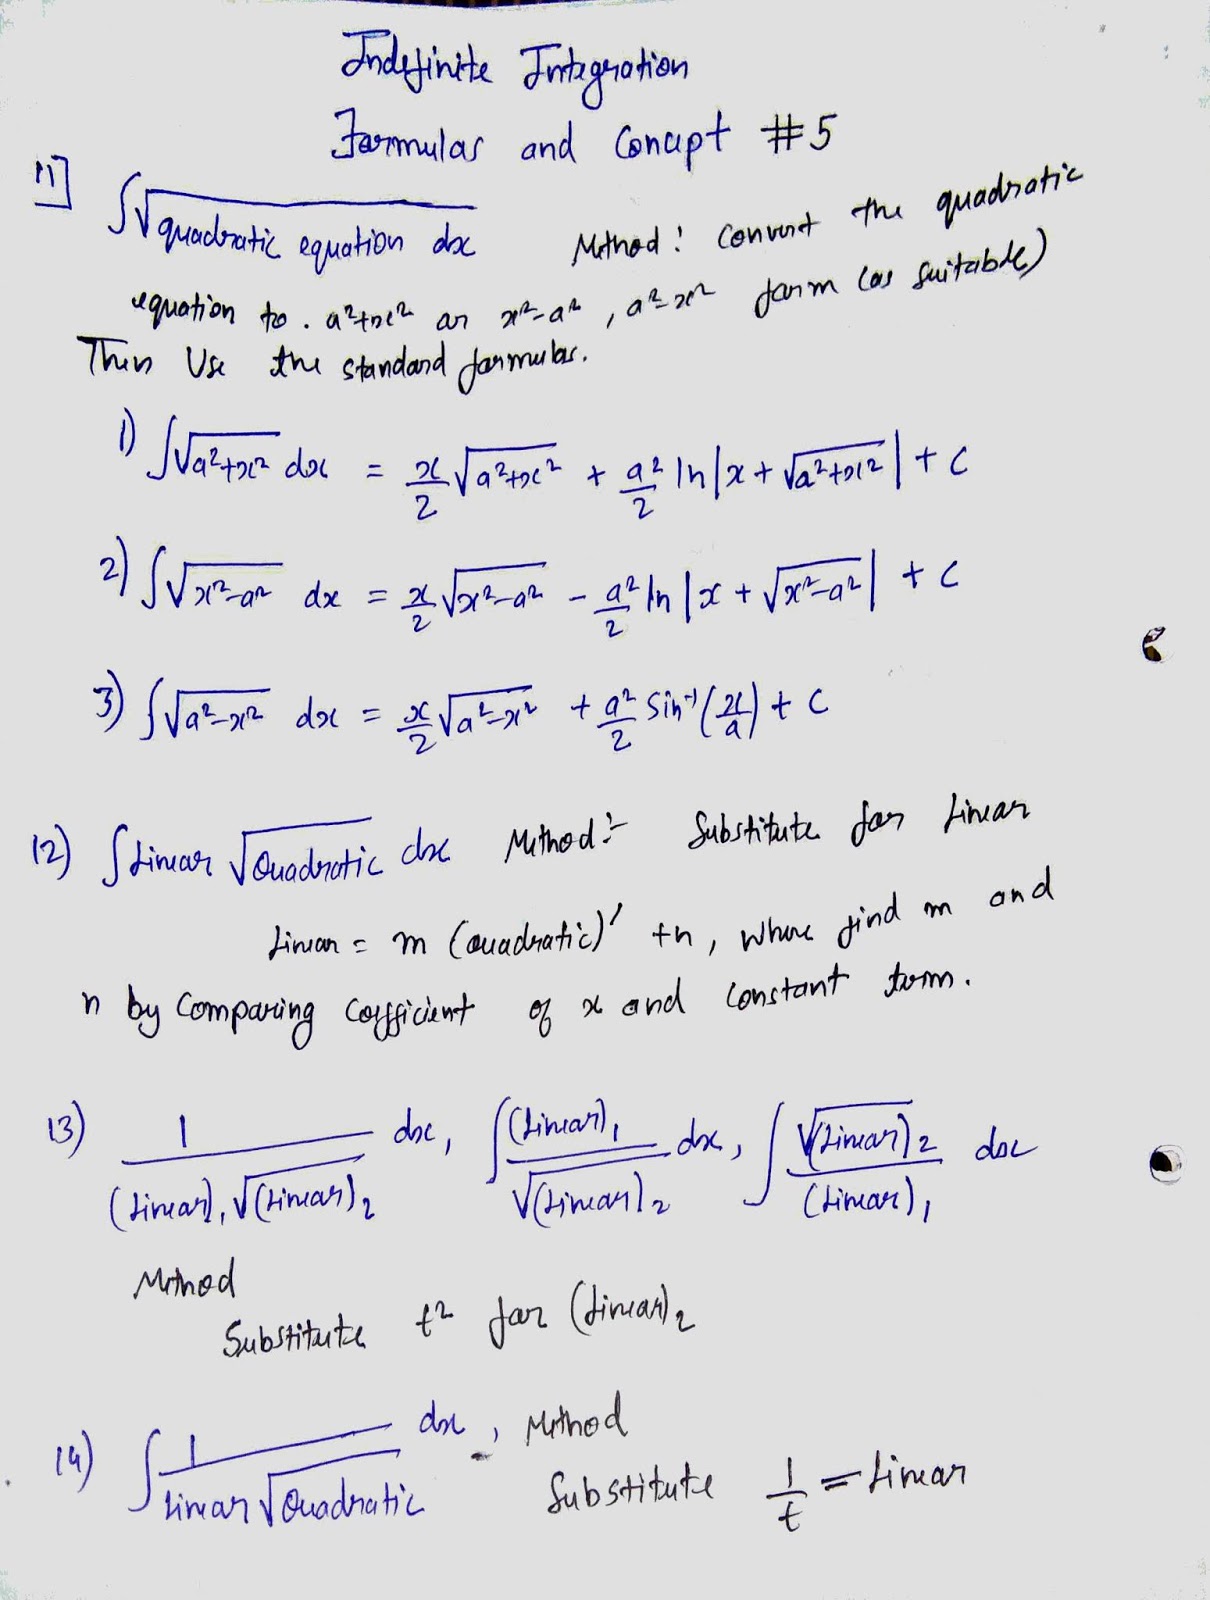 Indefinite Integration
Formulas and Concept #5
11] ∫√(quadratic equation dx) Method: Convert the quadratic
equation to . a²+x² or x²-a², a²-x² form (as suitable)
Then Use the standard formulas.
1) ∫√(a²+x²) dx = x/2 √(a²+x²) + a²/2 ln|x + √(a²+x²)| + C
2) ∫√(x²-a²) dx = x/2 √(x²-a²) - a²/2 ln|x + √(x²-a²)| + C
3) ∫√(a²-x²) dx = x/2 √(a²-x²) + a²/2 Sin⁻¹(x/a) + C
12) ∫Linear √(Quadratic) dx Method:- Substitute for Linear
Linear = m (Quadratic)' + n, Where find m and
n by Comparing Coefficient of x and constant term.
13) 1/((Linear)₁ √(Linear)₂) dx, ∫(Linear)₁/√(Linear)₂ dx, ∫√(Linear)₂/(Linear)₁ dx
Method
Substitute t² for (Linear)₂
14) ∫1/(Linear √(Quadratic)) dx, Method
Substitute 1/t = Linear